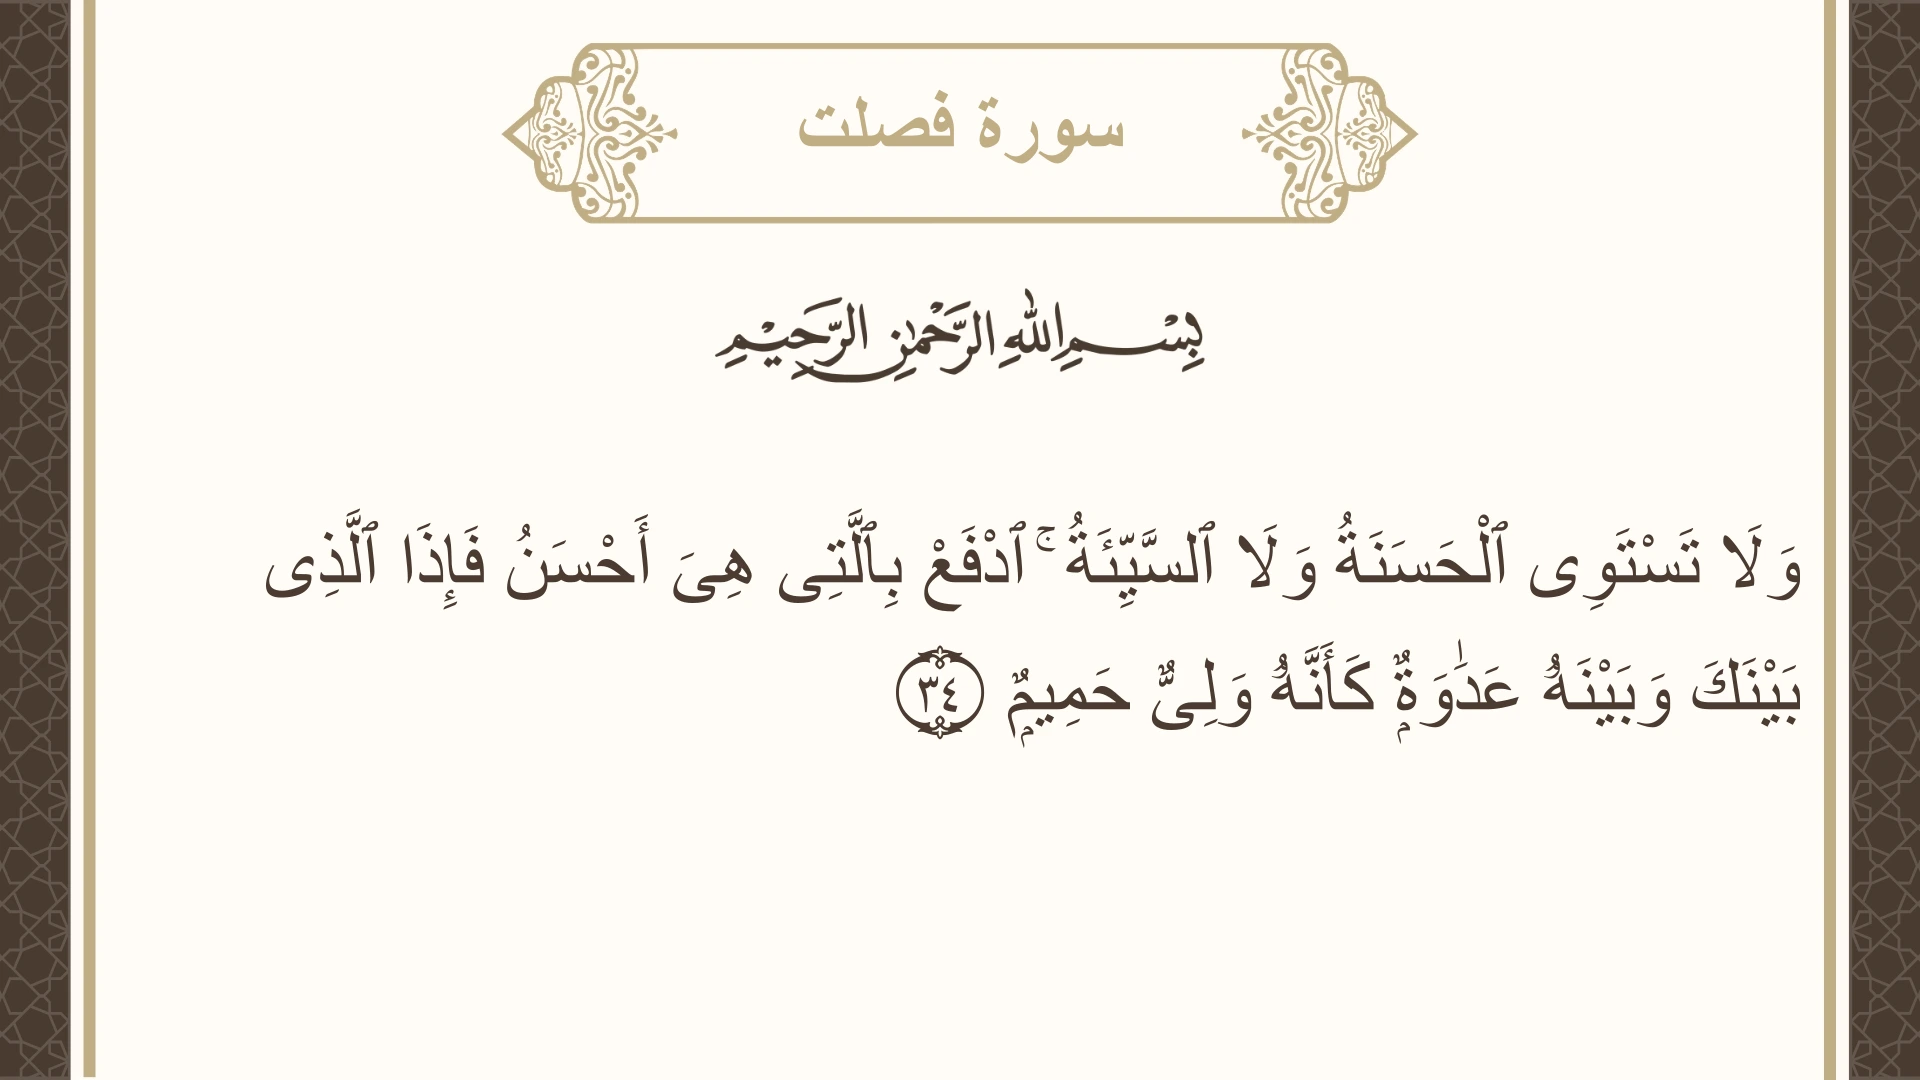 سورة فصلت
بِسْمِ اللهِ الرَّحْمٰنِ الرَّحِيْمِ
وَلَا تَسْتَوِى ٱلْحَسَنَةُ وَلَا ٱلسَّيِّئَةُ ۚ ٱدْفَعْ بِٱلَّتِى هِىَ أَحْسَنُ فَإِذَا ٱلَّذِى
بَيْنَكَ وَبَيْنَهُۥ عَدَٰوَةٌۭ كَأَنَّهُۥ وَلِىٌّ حَمِيمٌۭ ٣٤